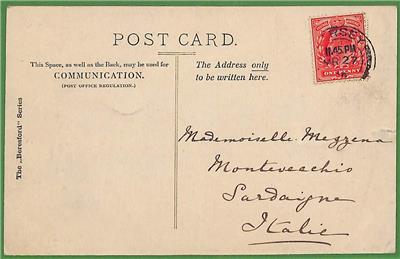 POST CARD.
This Space, as well as the Back, may be used for
COMMUNICATION.
(POST OFFICE REGULATION.)
The Address only
to be written here.
The „Beresford" Series
RSEY
11.45 PM
27
ONE PENNY
Mademoiselle Mezzena
Montevecchio
Sardaigne
Italie